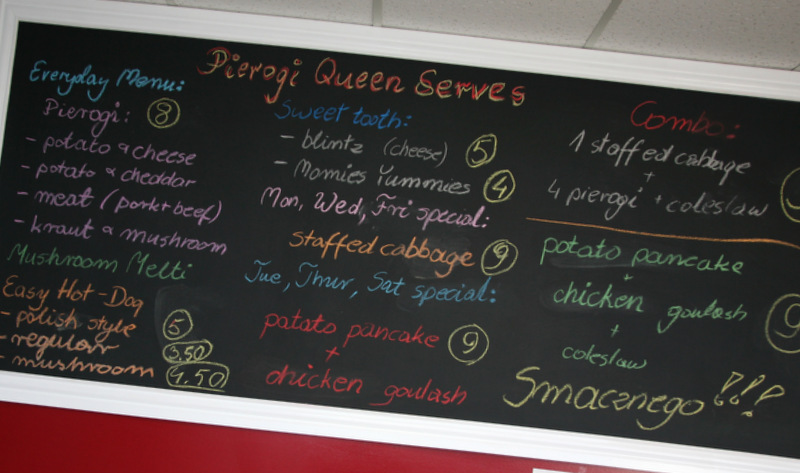 Pierogi Queen Serves
Everyday Menu:
Pierogi: 8
- potato & cheese
- potato & cheddar
- meat (pork + beef)
- kraut & mushroom
Mushroom Melti
Easy Hot-Dog
- polish style 5
- regular 3,50
- mushroom 4.50
Sweet tooth:
- blintz (cheese) 5
- Momies Yummies 4
Mon, Wed, Fri special:
Staffed cabbage 9
Tue, Thur, Sat special:
patato pancake 9
+
chicken goulash
Combo:
1 staffed cabbage
+
4 pierogi + coleslaw
potato pancake
+
chicken goulash 9
+
coleslaw
Smacznego!!!